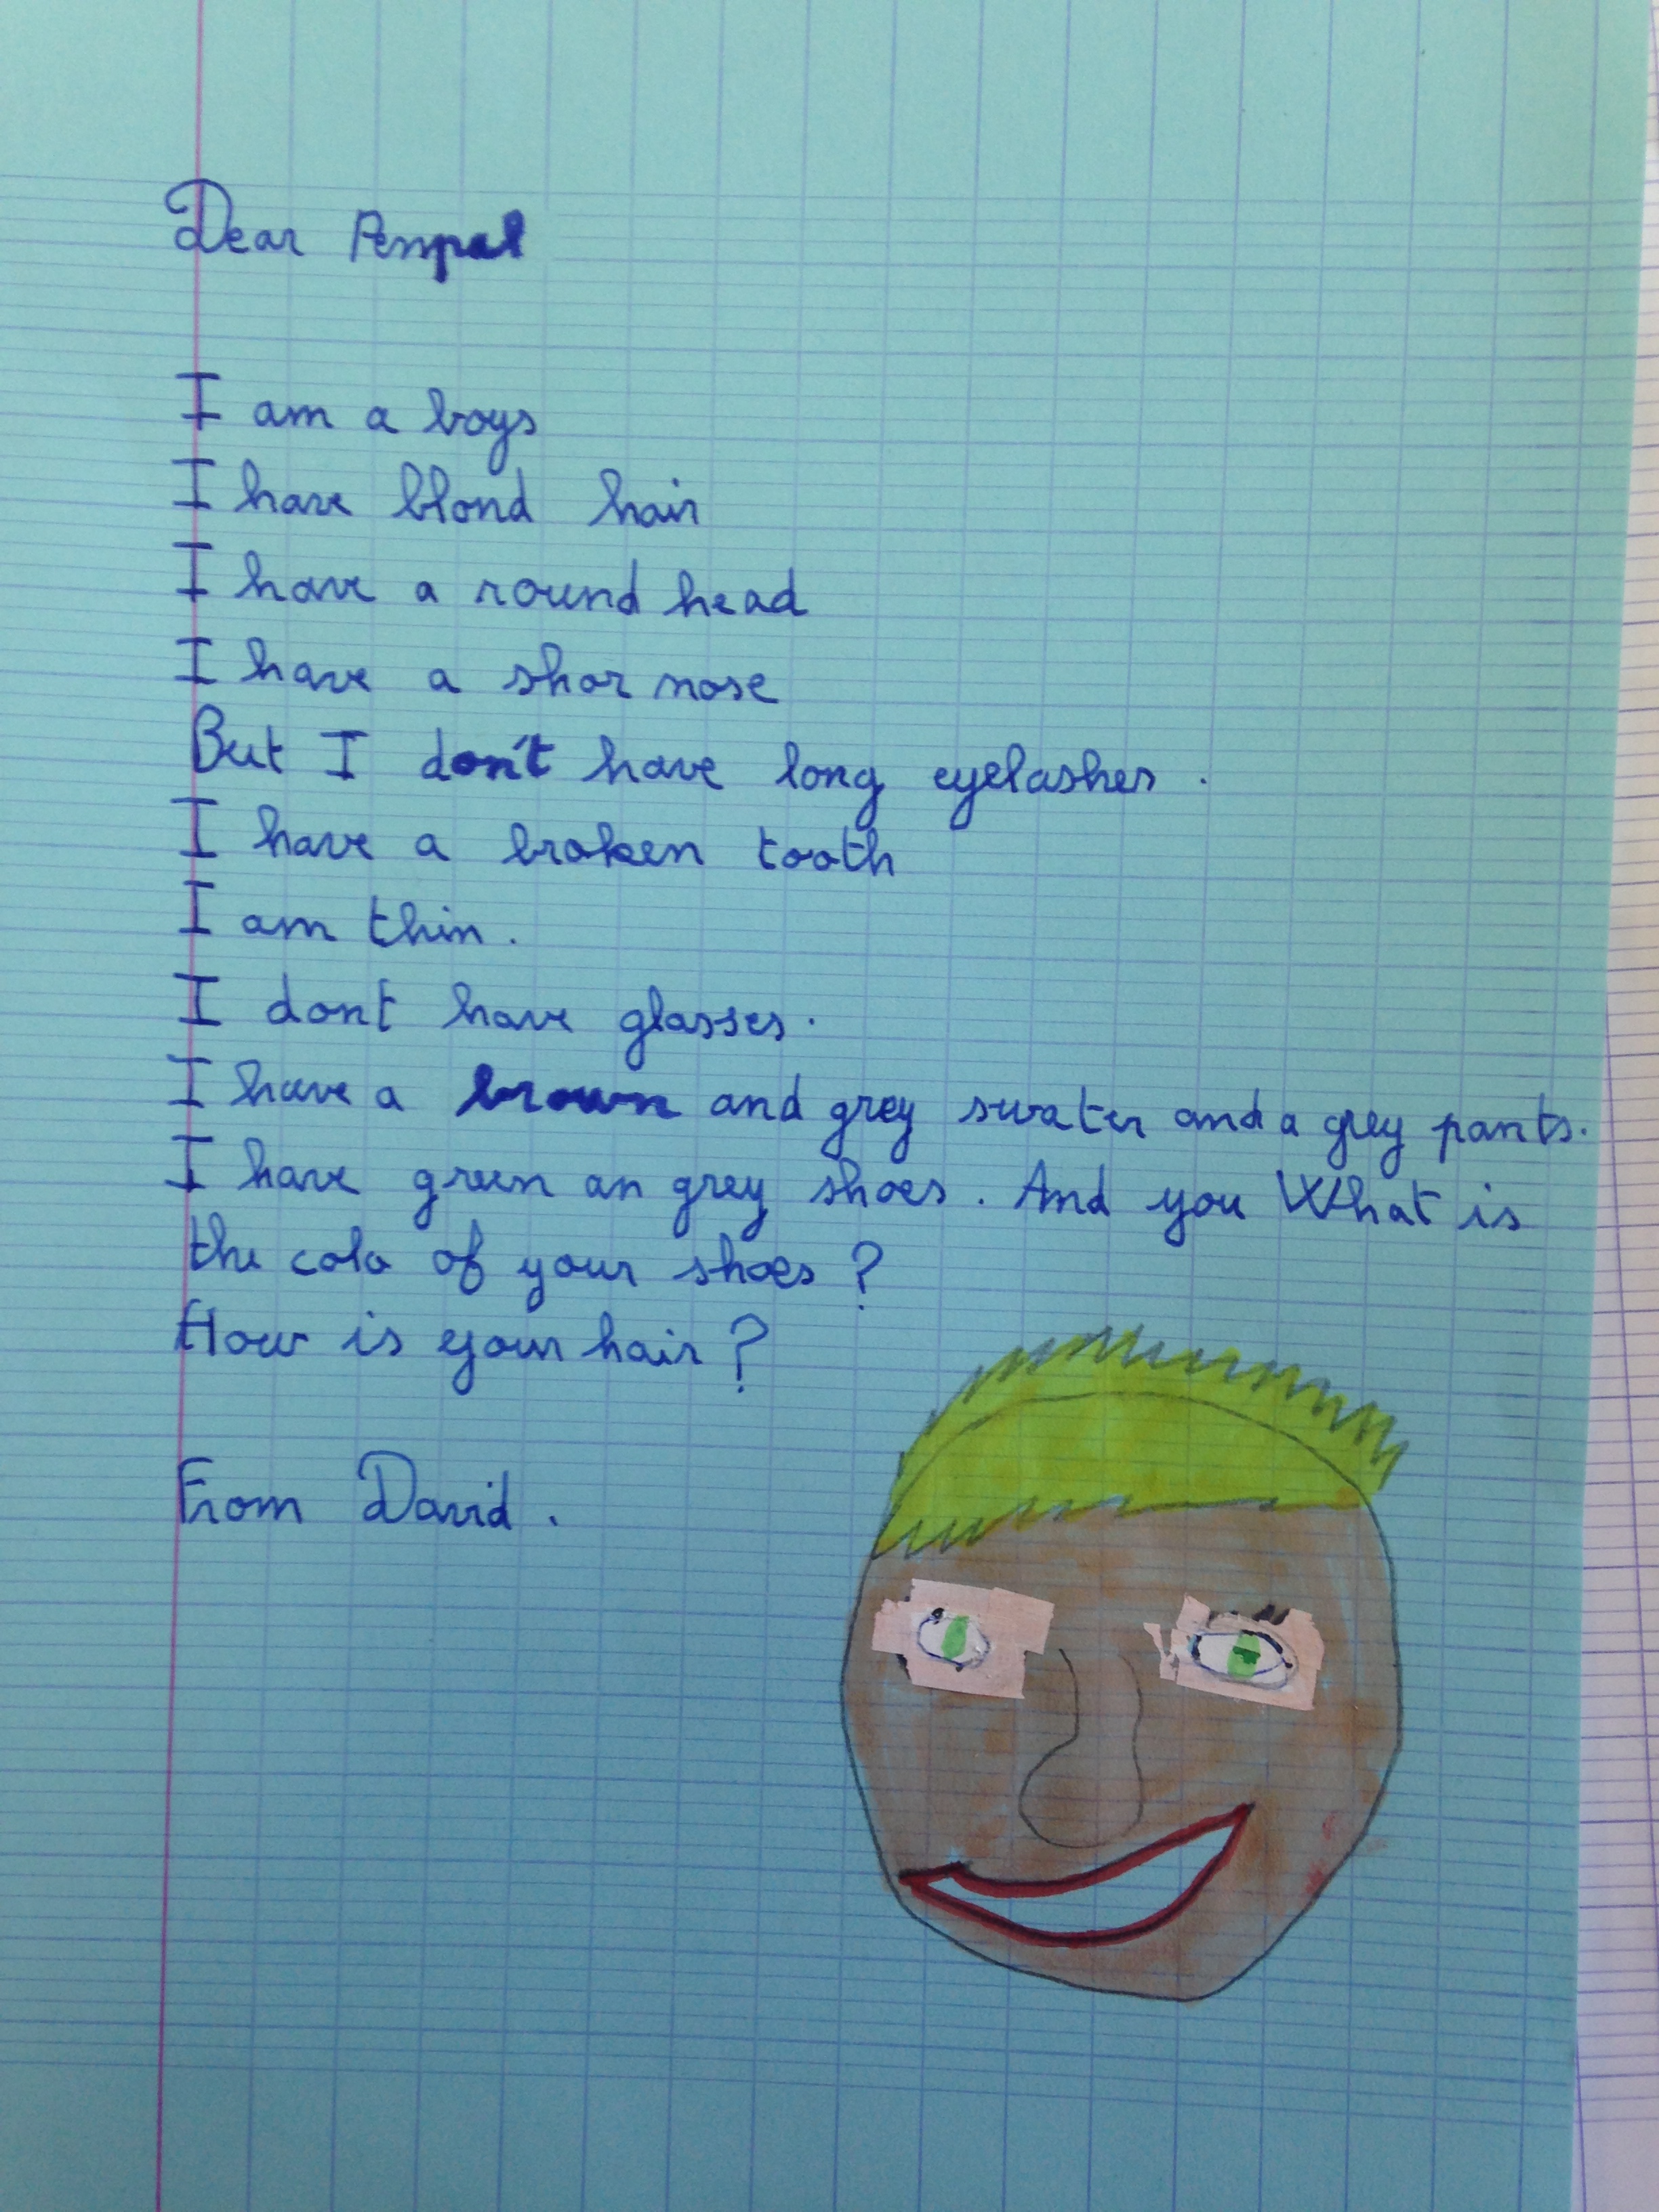 Dear Penpal
I am a boys
I have blond hair
I have a round head
I have a shor nose
But I don't have long eyelashes.
I have a broken tooth
I am thin.
I dont have glasses.
I have a brown and grey swater and a grey pants.
I have green an grey shoes. And you What is
the colo of your shoes?
How is your hair?
From David.